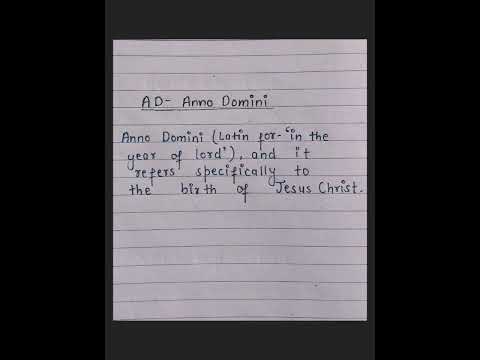 AD- Anno Domini
Anno Domini (Latin for- 'in the
year of lord'), and it
refers specifically to
the birth of Jesus Christ.